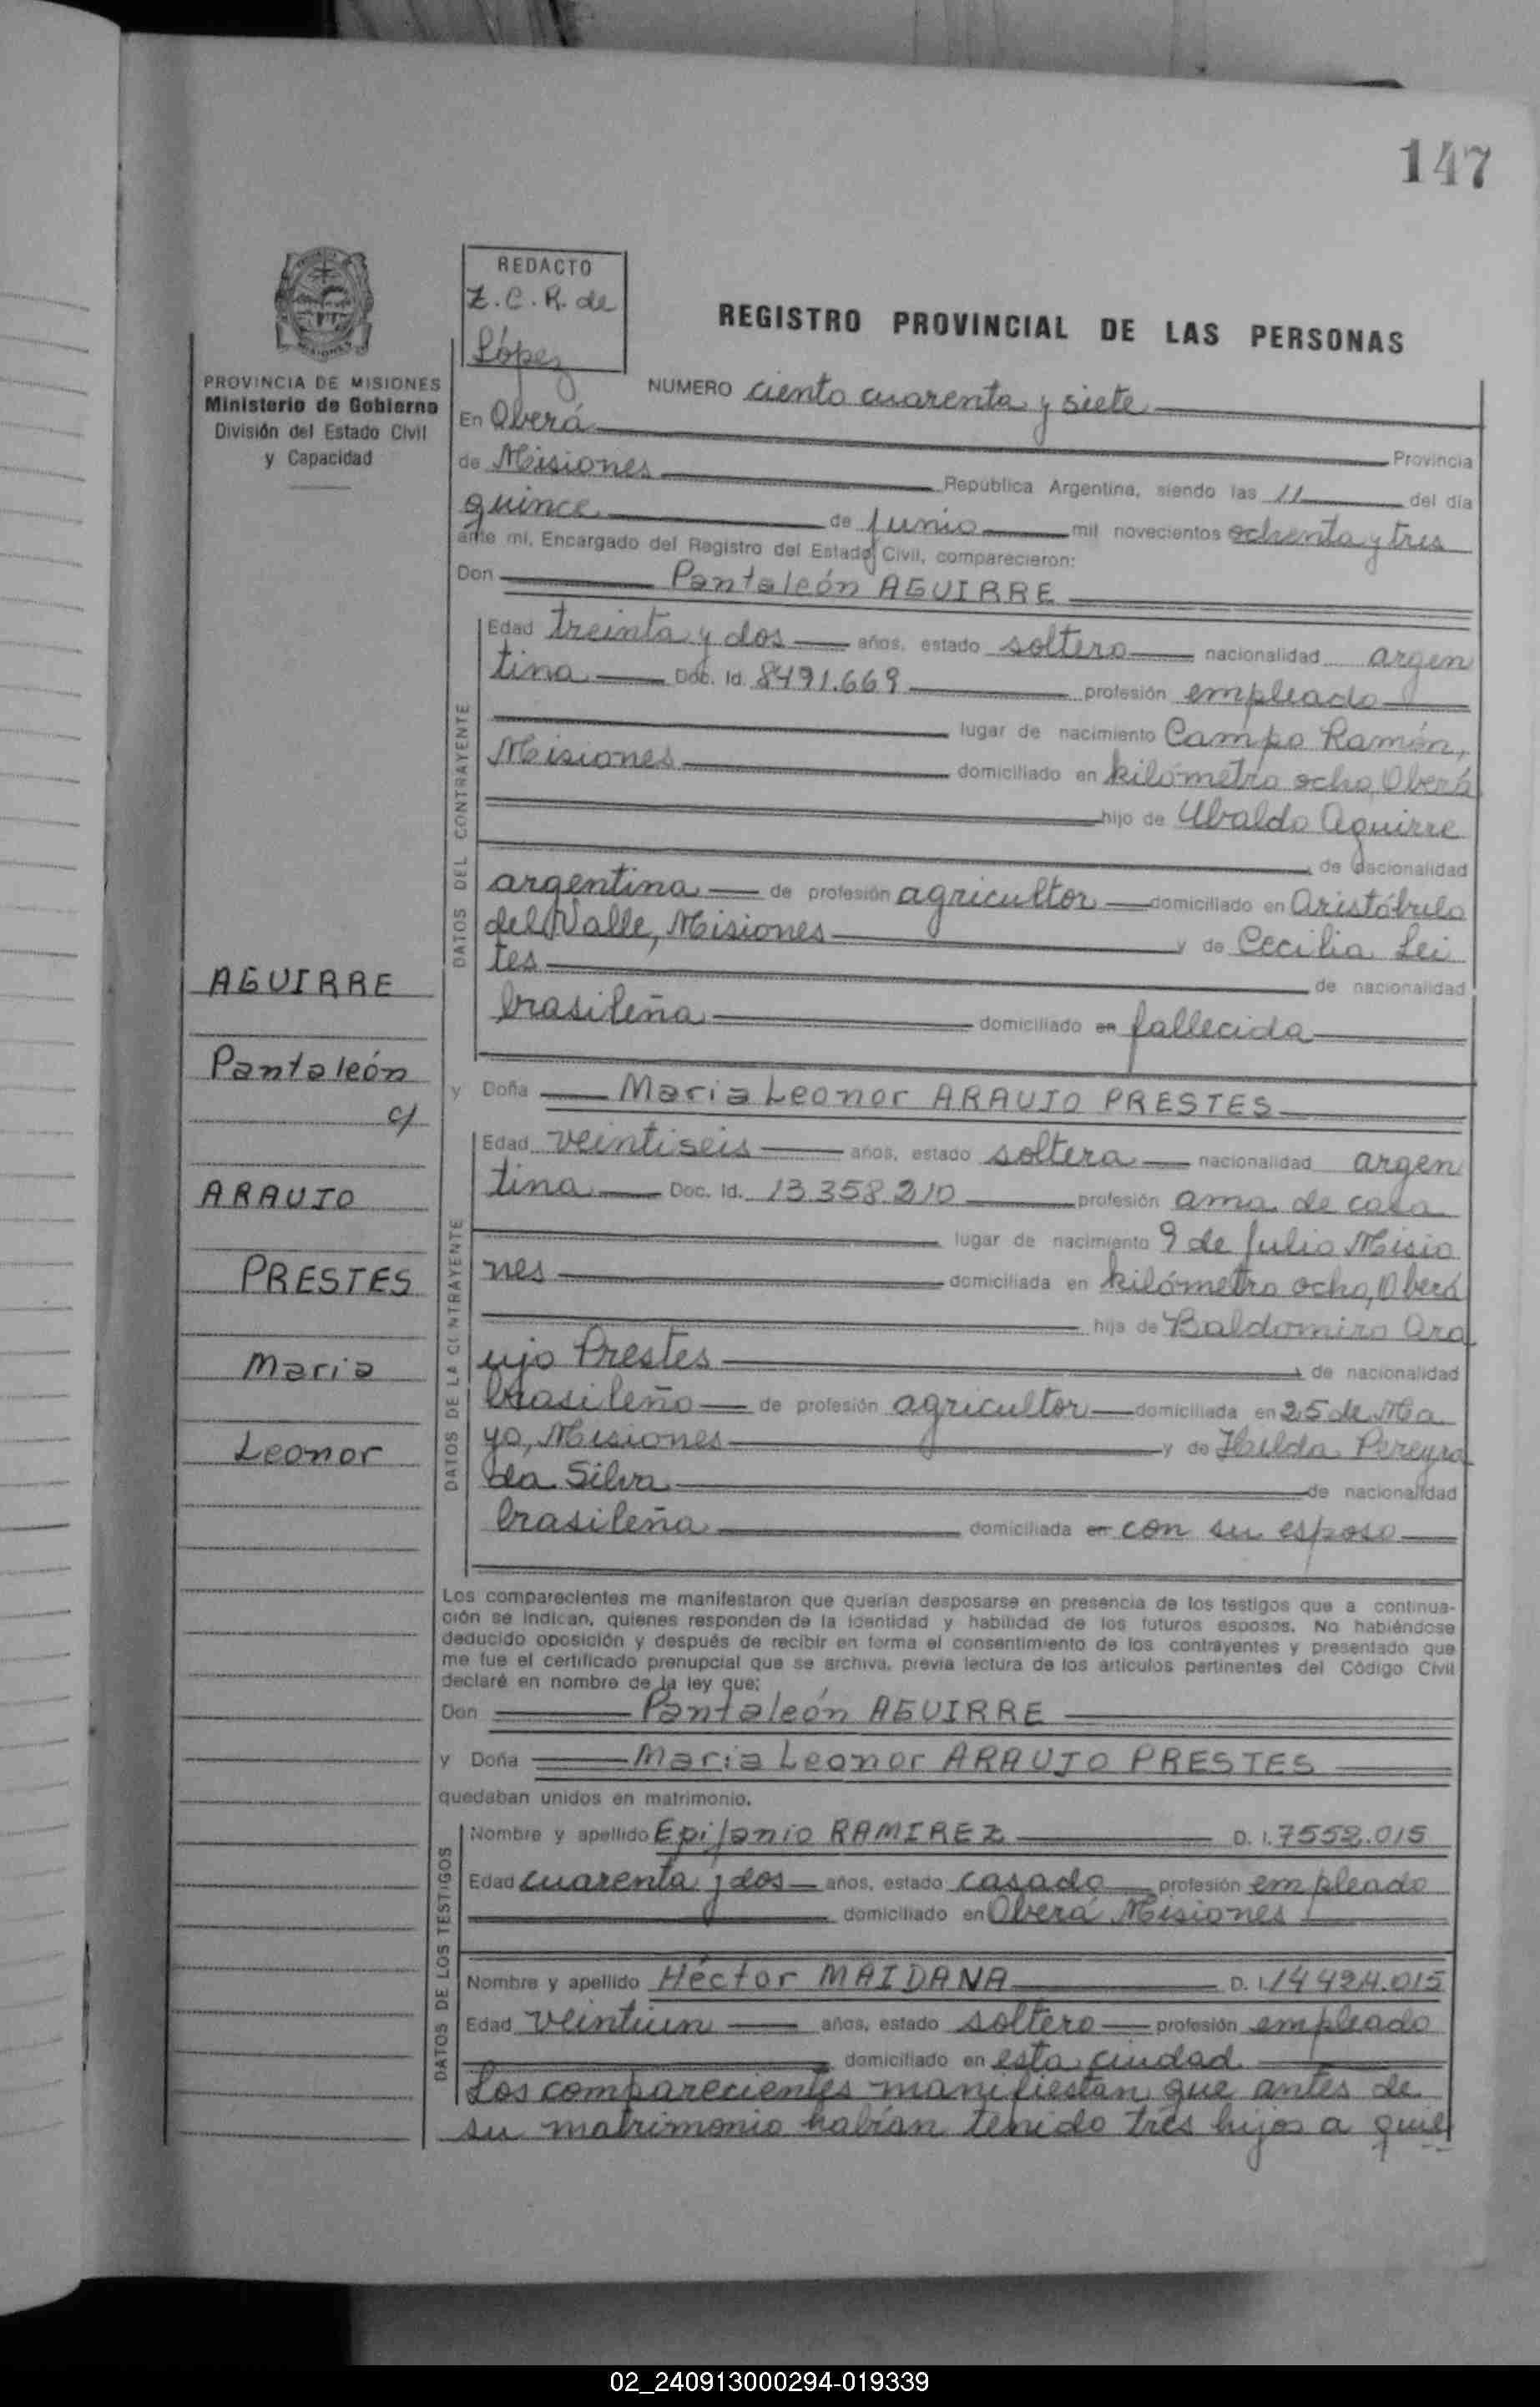 147
REDACTO
Z. C. R. de
López
REGISTRO PROVINCIAL DE LAS PERSONAS
PROVINCIA DE MISIONES
Ministerio de Gobierno
División del Estado Civil
y Capacidad
NUMERO ciento cuarenta y siete
En Oberá Provincia
de Misiones República Argentina, siendo las 11 del día
quince de junio mil novecientos ochenta y tres
ante mí, Encargado del Registro del Estado Civil, comparecieron:
Don Pantaleón AGUIRRE
DATOS DEL CONTRAYENTE
Edad treinta y dos años, estado soltero nacionalidad argen
tina Doc. Id. 8491.669 profesión empleado
lugar de nacimiento Campo Ramón,
Misiones domiciliado en kilómetro ocho, Oberá
hijo de Ubaldo Aguirre
de nacionalidad
argentina de profesión agricultor domiciliado en Aristóbulo
del Valle, Misiones y de Cecilia Lei
tes de nacionalidad
brasileña domiciliado en fallecida
AGUIRRE
Pantaleón
c/
ARAUJO
PRESTES
Maria
Leonor
y Doña Maria Leonor ARAUJO PRESTES
DATOS DE LA CONTRAYENTE
Edad veintiseis años, estado soltera nacionalidad argen
tina Doc. Id. 13.358.210 profesión ama de casa
lugar de nacimiento 9 de Julio Misio
nes domiciliada en kilómetro ocho, Oberá
hija de Baldomiro Ara
ujo Prestes de nacionalidad
brasileño de profesión agricultor domiciliada en 25 de Ma
yo, Misiones y de Hilda Pereyra
da Silva de nacionalidad
brasileña domiciliada en con su esposo
Los comparecientes me manifestaron que querían desposarse en presencia de los testigos que a continua-
ción se indican, quienes responden de la identidad y habilidad de los futuros esposos. No habiéndose
deducido oposición y después de recibir en forma el consentimiento de los contrayentes y presentado que
me fue el certificado prenupcial que se archiva, previa lectura de los artículos pertinentes del Código Civil
declaré en nombre de la ley que:
Don Pantaleón AGUIRRE
y Doña Maria Leonor ARAUJO PRESTES
quedaban unidos en matrimonio.
DATOS DE LOS TESTIGOS
Nombre y apellido Epifanio RAMIREZ D. I. 7552.015
Edad cuarenta y dos años, estado casado profesión empleado
domiciliado en Oberá Misiones
Nombre y apellido Héctor MAIDANA D. I. 14424.015
Edad veintiun años, estado soltero profesión empleado
domiciliado en esta ciudad
Los comparecientes manifiestan que antes de
su matrimonio habían tenido tres hijos a quie
02_240913000294-019339